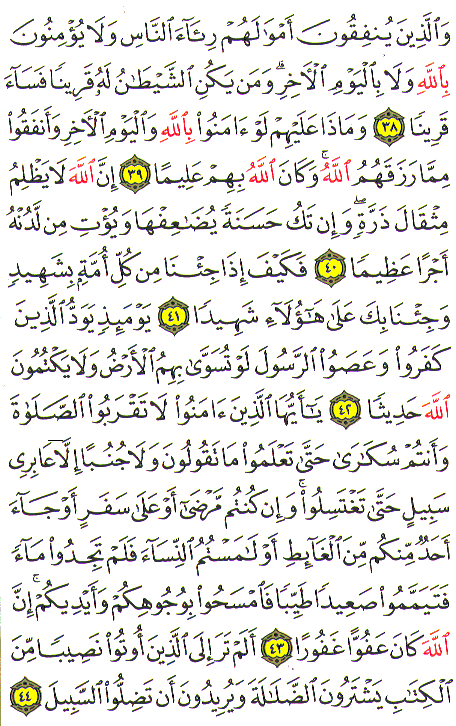 وَٱلَّذِينَ يُنفِقُونَ أَمْوَٰلَهُمْ رِئَآءَ ٱلنَّاسِ وَلَا يُؤْمِنُونَ
بِٱللَّهِ وَلَا بِٱلْيَوْمِ ٱلْأَخِرِ ۗ وَمَن يَكُنِ ٱلشَّيْطَٰنُ لَهُۥ قَرِينًا فَسَآءَ
قَرِينًا ٣٨ وَمَاذَا عَلَيْهِمْ لَوْ ءَامَنُوا۟ بِٱللَّهِ وَٱلْيَوْمِ ٱلْأَخِرِ وَأَنفَقُوا۟
مِمَّا رَزَقَهُمُ ٱللَّهُ ۚ وَكَانَ ٱللَّهُ بِهِمْ عَلِيمًا ٣٩ إِنَّ ٱللَّهَ لَا يَظْلِمُ
مِثْقَالَ ذَرَّةٍ ۖ وَإِن تَكُ حَسَنَةً يُضَٰعِفْهَا وَيُؤْتِ مِن لَّدُنْهُ
أَجْرًا عَظِيمًا ٤٠ فَكَيْفَ إِذَا جِئْنَا مِن كُلِّ أُمَّةٍۭ بِشَهِيدٍ
وَجِئْنَا بِكَ عَلَىٰ هَٰٓؤُلَآءِ شَهِيدًا ٤١ يَوْمَئِذٍ يَوَدُّ ٱلَّذِينَ
كَفَرُوا۟ وَعَصَوُا۟ ٱلرَّسُولَ لَوْ تُسَوَّىٰ بِهِمُ ٱلْأَرْضُ وَلَا يَكْتُمُونَ
ٱللَّهَ حَدِيثًا ٤٢ يَٰٓأَيُّهَا ٱلَّذِينَ ءَامَنُوا۟ لَا تَقْرَبُوا۟ ٱلصَّلَوٰةَ
وَأَنتُمْ سُكَٰرَىٰ حَتَّىٰ تَعْلَمُوا۟ مَا تَقُولُونَ وَلَا جُنُبًا إِلَّا عَابِرِى
سَبِيلٍ حَتَّىٰ تَغْتَسِلُوا۟ ۚ وَإِن كُنتُم مَّرْضَىٰٓ أَوْ عَلَىٰ سَفَرٍ أَوْ جَآءَ
أَحَدٌ مِّنكُم مِّنَ ٱلْغَآئِطِ أَوْ لَٰمَسْتُمُ ٱلنِّسَآءَ فَلَمْ تَجِدُوا۟ مَآءً
فَتَيَمَّمُوا۟ صَعِيدًا طَيِّبًا فَٱمْسَحُوا۟ بِوُجُوهِكُمْ وَأَيْدِيكُمْ ۗ إِنَّ
ٱللَّهَ كَانَ عَفُوًّا غَفُورًا ٤٣ أَلَمْ تَرَ إِلَى ٱلَّذِينَ أُوتُوا۟ نَصِيبًا مِّنَ
ٱلْكِتَٰبِ يَشْتَرُونَ ٱلضَّلَٰلَةَ وَيُرِيدُونَ أَن تَضِلُّوا۟ ٱلسَّبِيلَ ٤٤